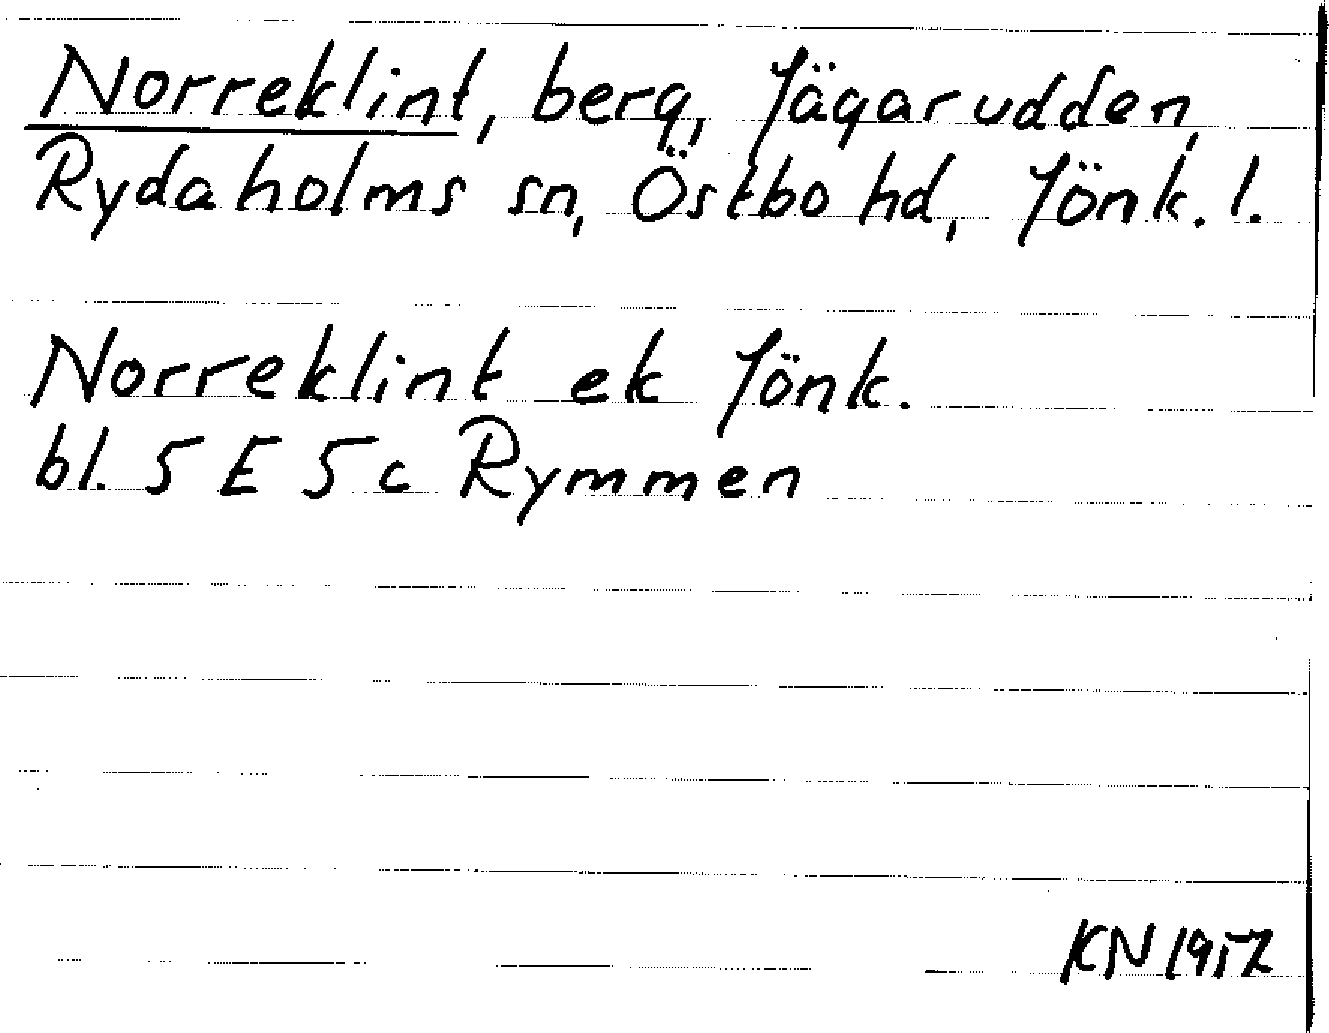 Norreklint, berg, Jägarudden,
Rydaholms sn, Östbo hd, Jönk. l.
Norreklint ek Jönk.
bl. 5 E 5 c Rymmen
KN 1952